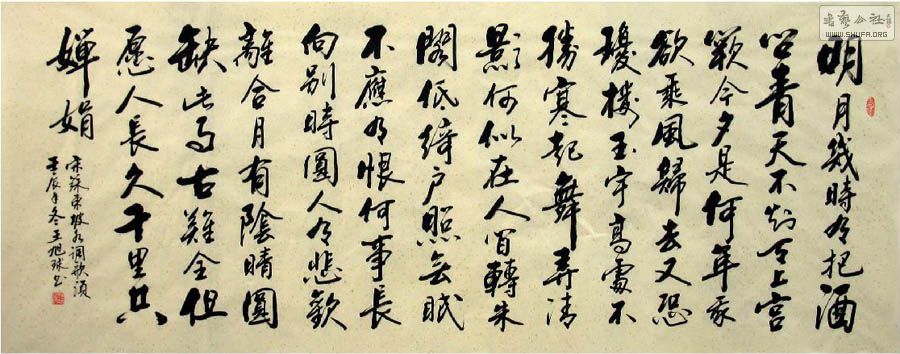 明月幾時有把酒
问青天不知天上宫
闕今夕是何年我
欲乘風歸去又恐
瓊樓玉宇高處不
勝寒起舞弄清
影何似在人间轉朱
閣低綺户照無眠
不應有恨何事長
向别時圓人有悲歡
離合月有陰晴圓
缺此事古難全但
愿人長久千里共
嬋娟
宋蘇東坡水调歌頭
壬辰年冬王旭球书
书艺公社
WWW.SHUFA.ORG